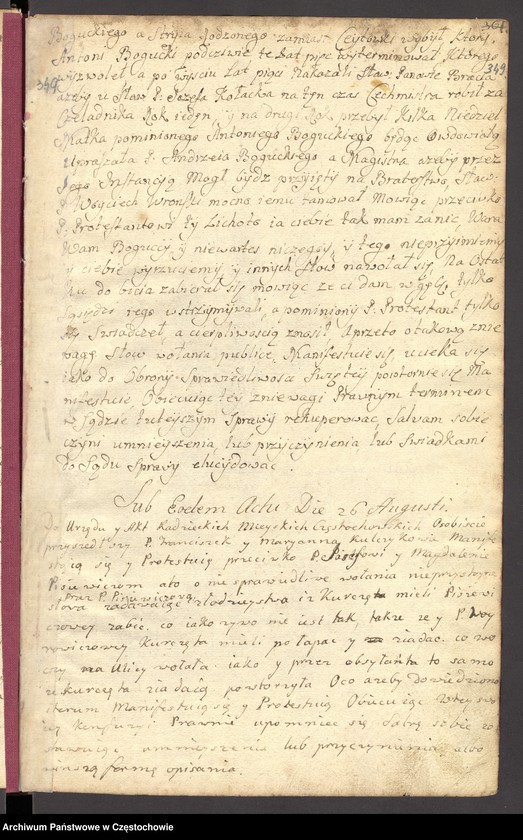 364.
349
349
Boguckiego a Stryia Rodzonego zamiast Czytowki wybył, który
Antoni Bogucki podczciwie te Lat pięc wyterminował, Którego
wyzwolił, a po wyściu Lat pięci Nakazali Sław: Panowie Bracia
azeby u Sław P: Jozefa Kołacka na tyn czas Cechmistra robił za
Czeladnika Rok ieden, y na drugi Rok przebył Kilka Niedziel
Matka pominionego Antoniego Boguckiego będąc Owdowiałą
Upraszała P. Andrzeia Boguckiego a Magistra azeby przez
Jego Instancyią Mogł bydz przyięty na Bractwo, Sław:
P Woyciech Wronski mocno iemu tamował Mowiąc przeciwko
P: Protestantowi Ty Lichoto ia ciebie tak mam za nic, Wara
Wam Boguccy y niewartes niczego, y tego nieprzyimiemy
y ciebie wyrzucemy y innych Słow nawołał się, Na Ostat
ku do bicia zabierał się mowiąc ze ci dam w gębę, tylko
Sąsiedzi iego wstrzymywali, a pominiony P. Protestant tylko
się Swiadczeł, a cierpliwoscią znosił Aprzeto otakową znie
wagę Słow wołania publice, Manifestuie się, ucieka się
iako do Obrony Sprawiedliwosci Swiętey powtornie się Ma
nifestuie, Obiecuiąc tey zniewagi Prawnym terminem
w Sądzie tuteyszym Sprawy rekuperować, Salvam sobie
czyni umnieyszenia, lub przyczynienia, lub Swiadkami
do Sądu Sprawy elucydować.
Sub Eodem Actu Die 26 Augusti.
Do Urzędu y Akt Radzieckich Mieyskich Częstochowskich Osobiscie
przyszedłszy P. Franciszek y Maryanna Kulczykowie Manife
stuią się y Protestuią przeciwko P. Jozefowi y Magdalenie
Pisiewiczom ato o nie sprawiedliwe wołania nieprzystoyne
przez P. Pisiewiczową
słowa zadawaiąc złodzieystwa iz Kurczęta mieli Pisiewi
czowey zabić. co iako zywo nie iest tak, także ze y P. Woy
Kurczęta mieli połapac y ziadac. co wo
czy na Ulicy wołała. iako y przez obsyłanta to samo
ze kurczęta ziadacą powtorzyła Oco azeby dowiedziono
iterum Manifestuią się y Protestuią Obiecuiąc wtey swo
iey Prawnie upomniec się dalszą sobie zo
stawuiąc umnieyszenia lub przyczynienia, albo
w inszą formę opisania.
Archiwum Państwowe w Częstochowie